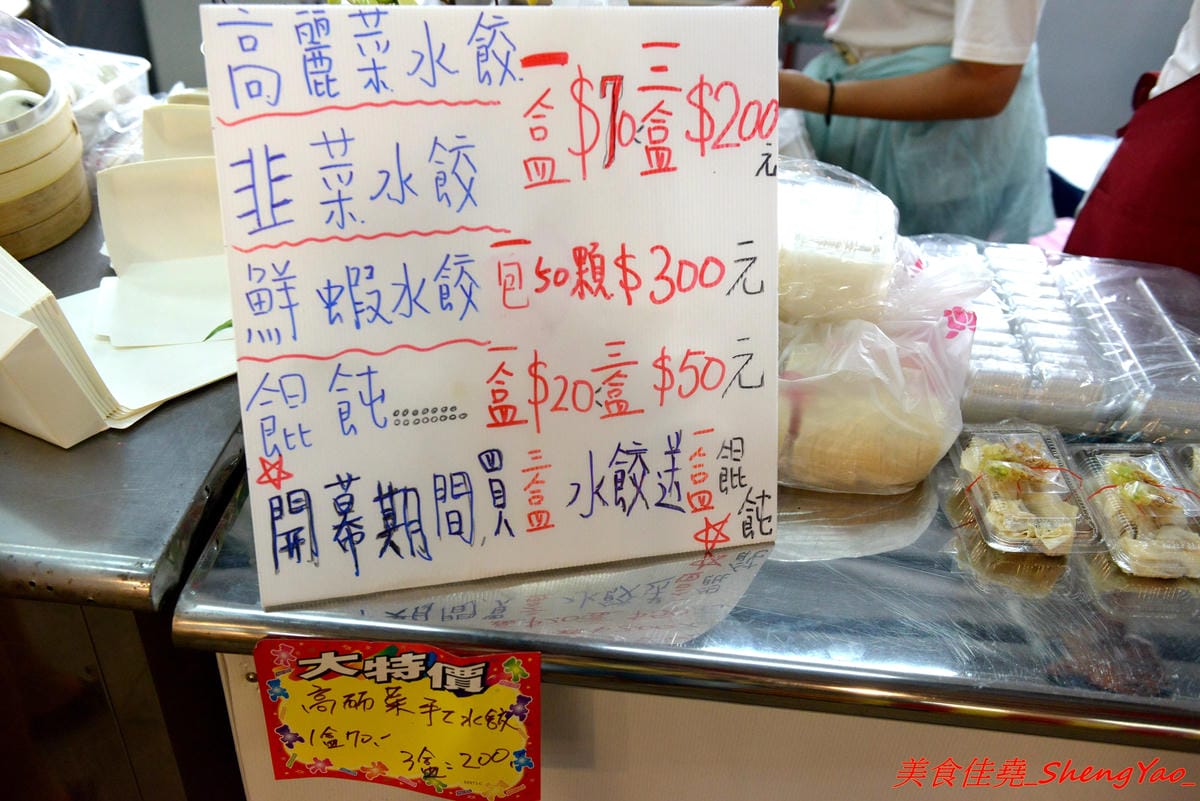 高麗菜水餃
一盒$70 三盒$200元
韭菜水餃
鮮蝦水餃 一包50顆$300元
餛飩......... 一盒$20 三盒$50元
開幕期間買三盒水餃送一盒餛飩
大特價
高砳菜手工水餃
1盒70.-
3盒=200
美食佳堯_ShengYao_